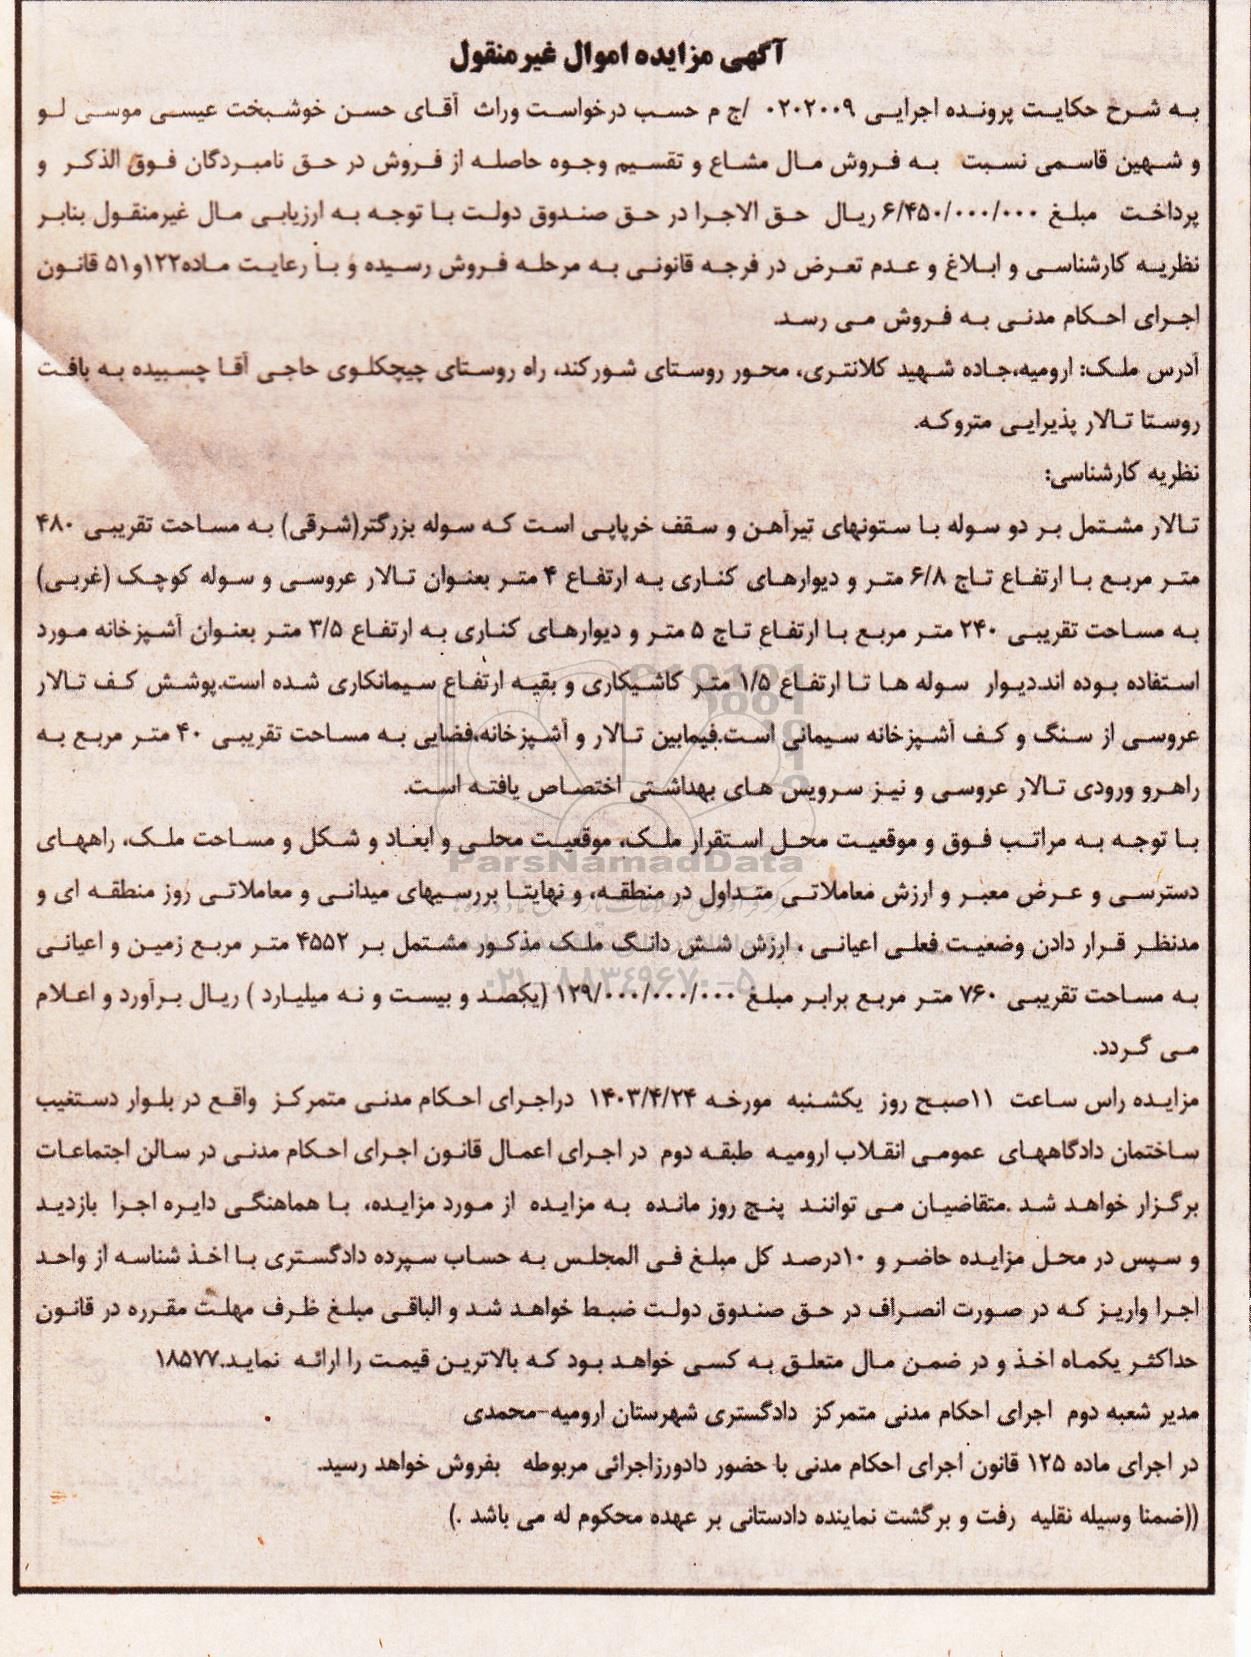 آگهی مزایده اموال غیرمنقول
به شرح حکایت پرونده اجرایی ۰۲۰۲۰۰۹ /ج م حسب درخواست وراث آقای حسن خوشبخت عیسی موسی لو
و شهین قاسمی نسبت به فروش مال مشاع و تقسیم وجوه حاصله از فروش در حق نامبردگان فوق الذکر و
پرداخت مبلغ ۶/۴۵۰/۰۰۰/۰۰۰ ریال حق الاجرا در حق صندوق دولت با توجه به ارزیابی مال غیرمنقول بنابر
نظریه کارشناسی و ابلاغ و عدم تعرض در فرجه قانونی به مرحله فروش رسیده و با رعایت ماده۱۲۲و۵۱ قانون
اجرای احکام مدنی به فروش می رسد.
آدرس ملک: ارومیه،جاده شهید کلانتری، محور روستای شورکند، راه روستای چیچکلوی حاجی آقا چسبیده به بافت
روستا تالار پذیرایی متروکه.
نظریه کارشناسی:
تالار مشتمل بر دو سوله با ستونهای تیرآهن و سقف خرپایی است که سوله بزرگتر(شرقی) به مساحت تقریبی ۴۸۰
متر مربع با ارتفاع تاج ۶/۸ متر و دیوارهای کناری به ارتفاع ۴ متر بعنوان تالار عروسی و سوله کوچک (غربی)
به مساحت تقریبی ۲۴۰ متر مربع با ارتفاع تاج ۵ متر و دیوارهای کناری به ارتفاع ۳/۵ متر بعنوان آشپزخانه مورد
استفاده بوده اند.دیوار سوله ها تا ارتفاع ۱/۵ متر کاشیکاری و بقیه ارتفاع سیمانکاری شده است.پوشش کف تالار
عروسی از سنگ و کف آشپزخانه سیمانی است.فیمابین تالار و آشپزخانه،فضایی به مساحت تقریبی ۴۰ متر مربع به
راهرو ورودی تالار عروسی و نیز سرویس های بهداشتی اختصاص یافته است.
با توجه به مراتب فوق و موقعیت محل استقرار ملک، موقعیت محلی و ابعاد و شکل و مساحت ملک، راههای
ParsNamadData
دسترسی و عرض معبر و ارزش معاملاتی متداول در منطقه، و نهایتا بررسیهای میدانی و معاملاتی روز منطقه ای و
مدنظر قرار دادن وضعیت فعلی اعیانی ، ارزش شش دانگ ملک مذکور مشتمل بر ۴۵۵۲ متر مربع زمین و اعیانی
۰۲۱-۸۸۳۴۹۶۷۰-۵
به مساحت تقریبی ۷۶۰ متر مربع برابر مبلغ ۱۲۹/۰۰۰/۰۰۰/۰۰۰ (یکصد و بیست و نه میلیارد ) ریال برآورد و اعلام
می گردد.
مزایده راس ساعت ۱۱صبح روز یکشنبه مورخه ۱۴۰۳/۴/۲۴ دراجرای احکام مدنی متمرکز واقع در بلوار دستغیب
ساختمان دادگاههای عمومی انقلاب ارومیه طبقه دوم در اجرای اعمال قانون اجرای احکام مدنی در سالن اجتماعات
برگزار خواهد شد .متقاضیان می توانند پنج روز مانده به مزایده از مورد مزایده، با هماهنگی دایره اجرا بازدید
و سپس در محل مزایده حاضر و ۱۰درصد کل مبلغ فی المجلس به حساب سپرده دادگستری با اخذ شناسه از واحد
اجرا واریز که در صورت انصراف در حق صندوق دولت ضبط خواهد شد و الباقی مبلغ ظرف مهلت مقرره در قانون
حداکثر یکماه اخذ و در ضمن مال متعلق به کسی خواهد بود که بالاترین قیمت را ارائه نماید.۱۸۵۷۷
مدیر شعبه دوم اجرای احکام مدنی متمرکز دادگستری شهرستان ارومیه-محمدی
در اجرای ماده ۱۲۵ قانون اجرای احکام مدنی با حضور دادورزاجرائی مربوطه بفروش خواهد رسید.
((ضمنا وسیله نقلیه رفت و برگشت نماینده دادستانی بر عهده محکوم له می باشد .)